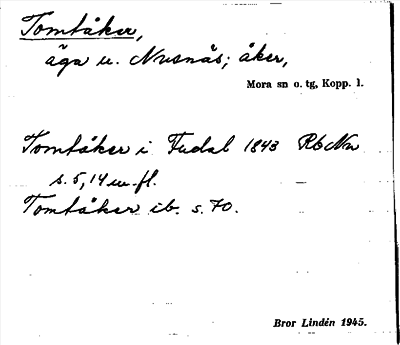 Tomtåker,
äga u. Nusnäs; åker,
Mora sn o. tg, Kopp. l.
Tomtåker i Fudal 1843 Rb Nu
s. 5, 14 m. fl.
Tomtåker ib. s. 70.
Bror Lindén 1945.